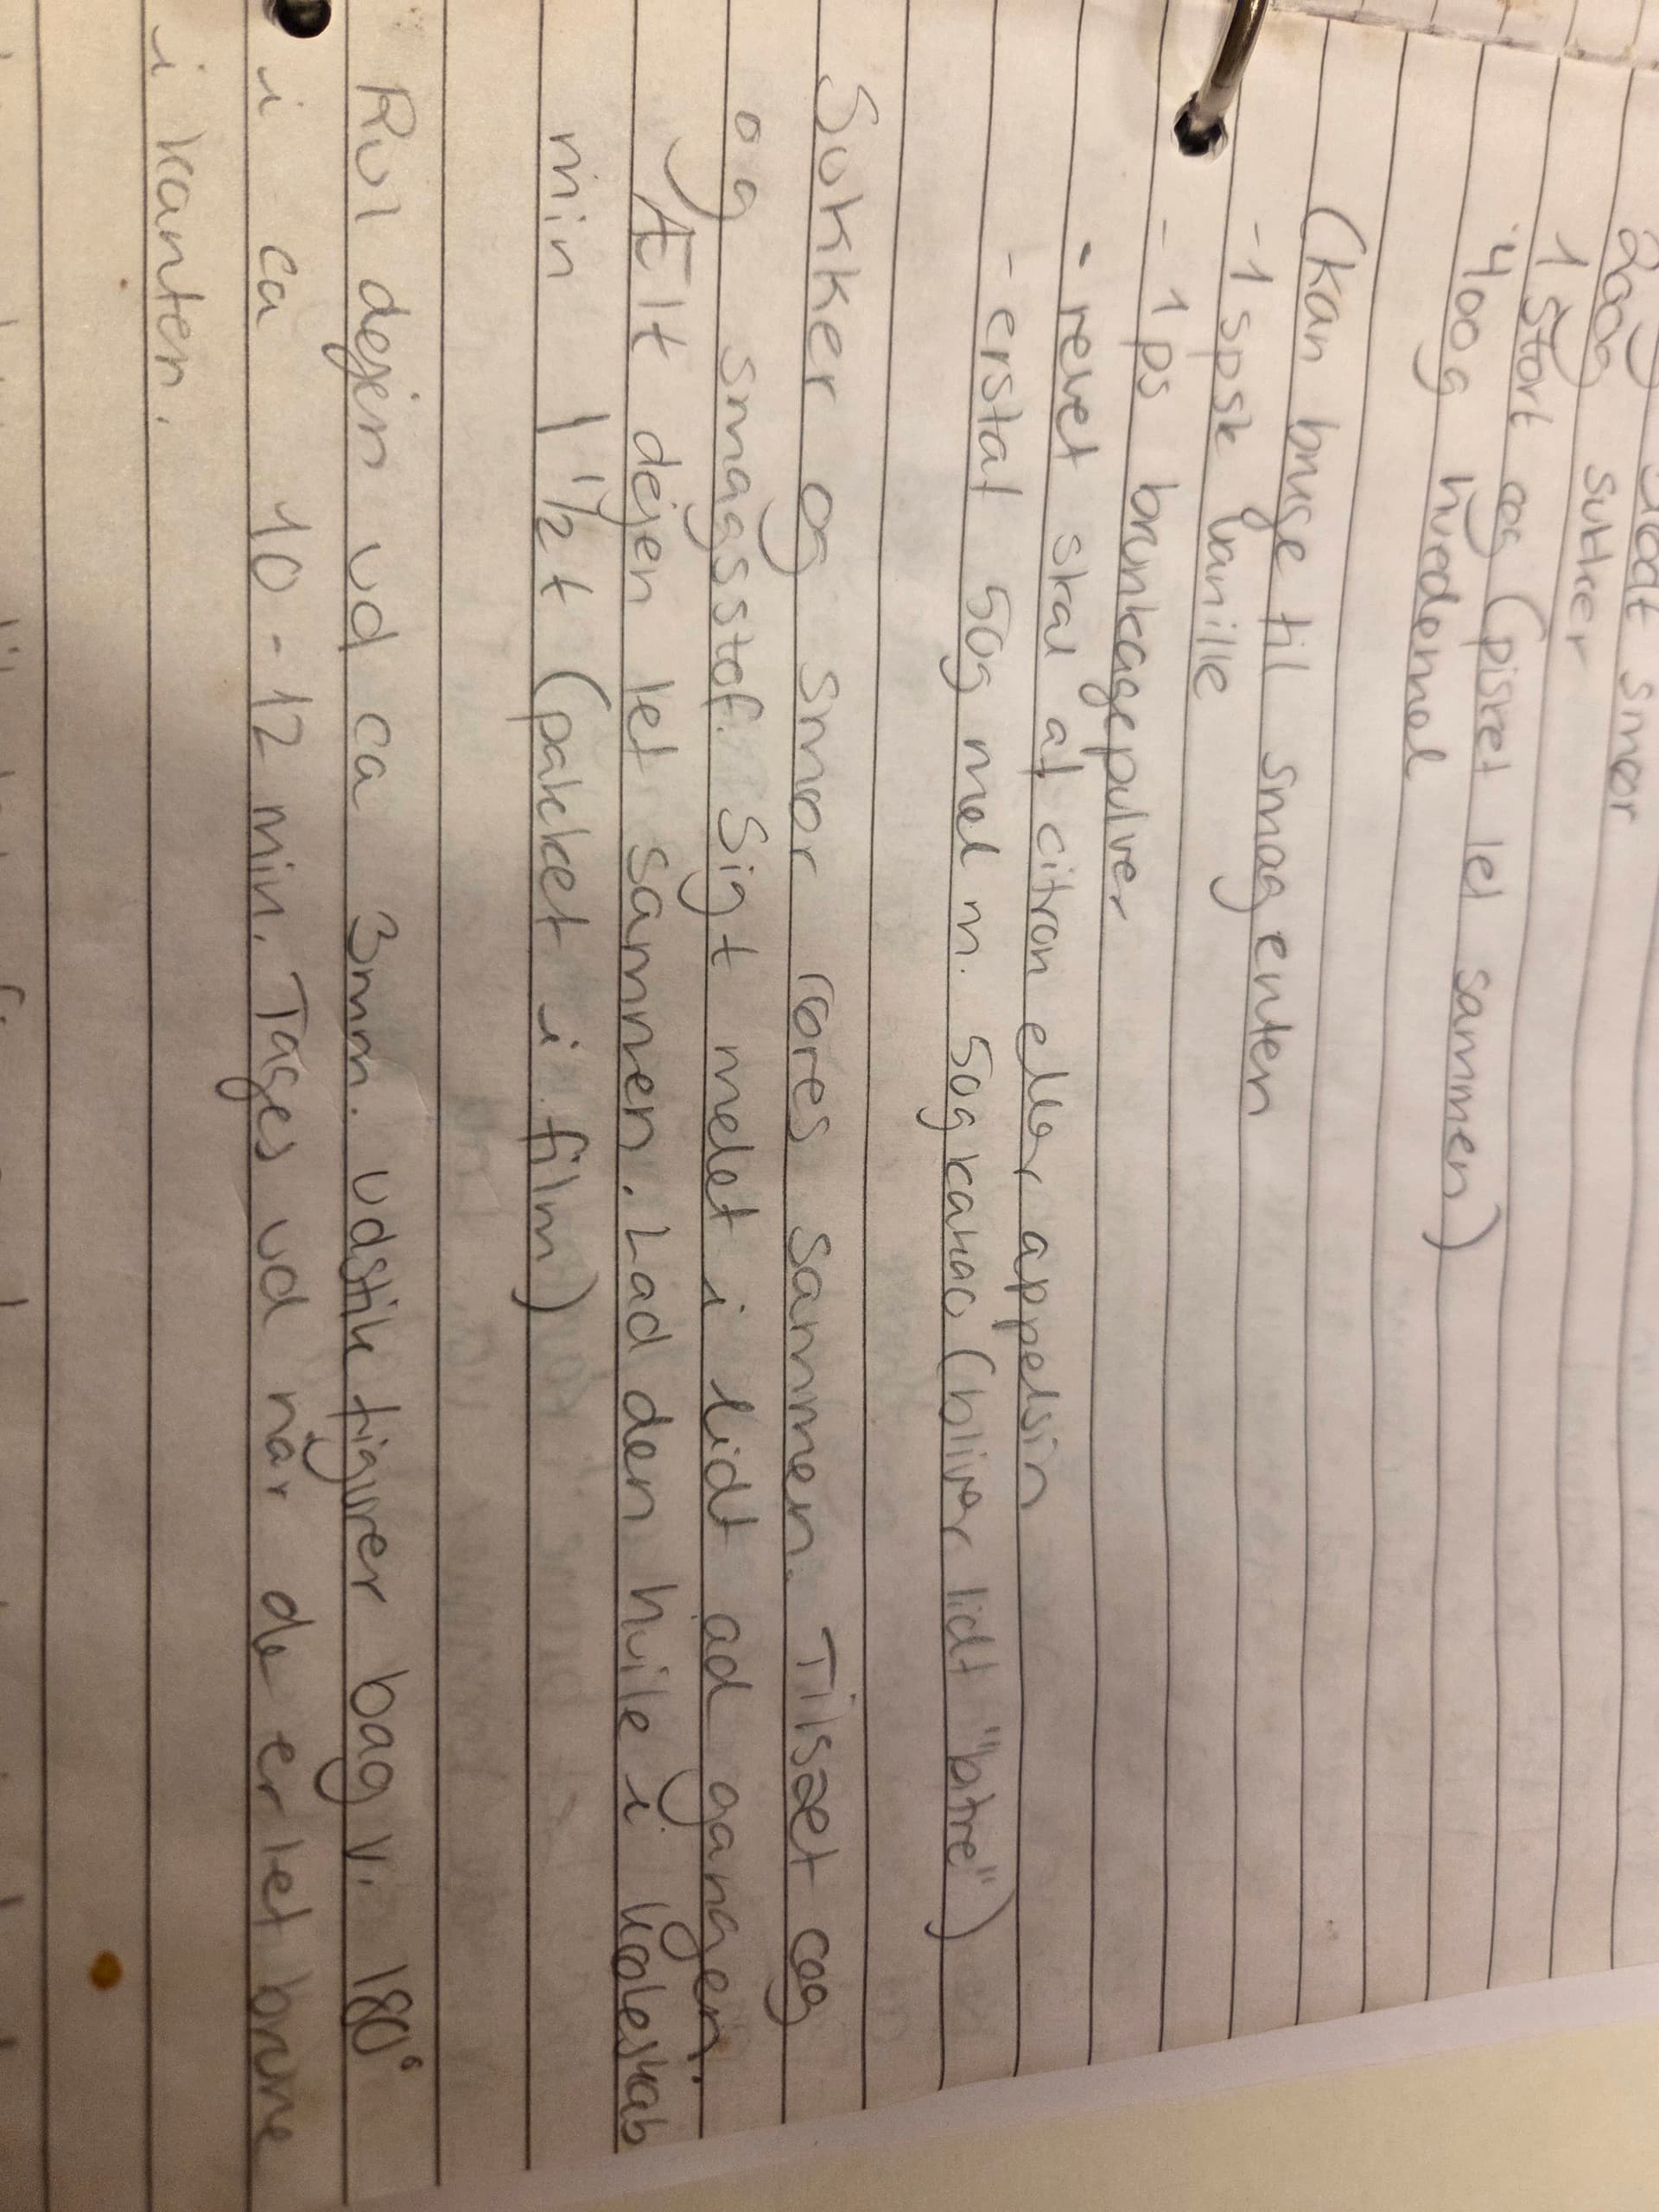 smør
200g sukker
1 stort æg (pisket let sammen)
400g hvedemel
(kan bruge til smag enten
-1 spsk vanille
- 1 ps brunkagepulver
- revet skal af citron eller appelsin
- erstat 50g mel m. 50g kakao (bliver lidt "bitre")
Sukker og smør røres sammen. Tilsæt æg
og smagsstof. Sigt melet i lidt ad gangen.
Ælt dejen let sammen. Lad den hvile i køleskab
min 1 1/2 t (pakket i film)
Rul dejen ud ca 3mm. Udstik figurer bag v. 180°
i ca 10-12 min. Tages ud når de er let brune
i kanten.